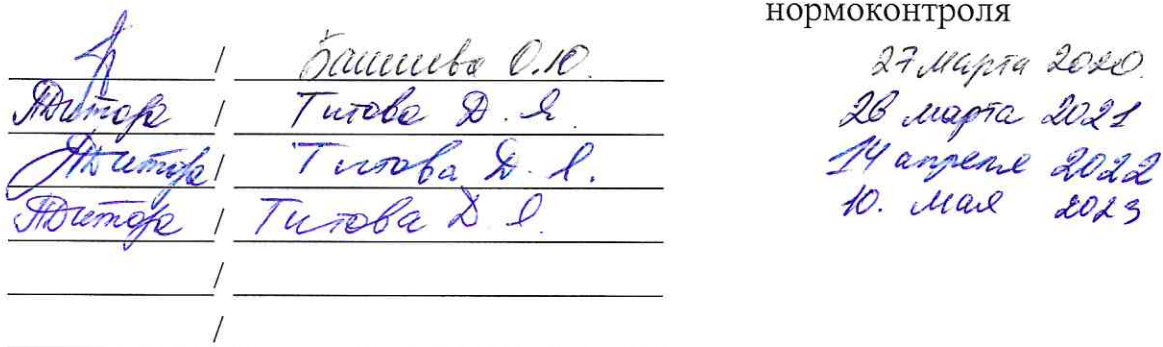 нормоконтроля
/ Башиева О.Ю. 27 марта 2020
/ Титова Д. Я. 26 марта 2021
/ Титова Д. Я. 14 апреля 2022
/ Титова Д Я. 10. мая 2023
/
/